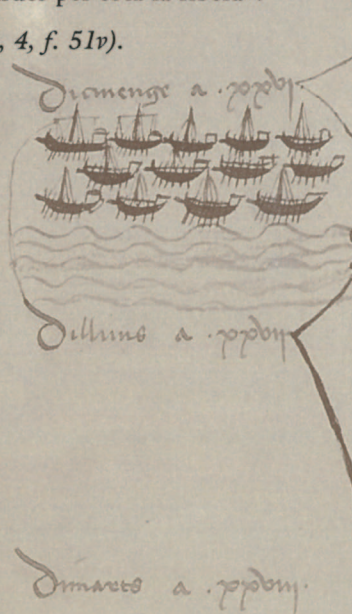 , 4, f. 51v).
Dicmenge a .xxvi.
Dilluns a .xxvii
Dimarts a .xxviii.